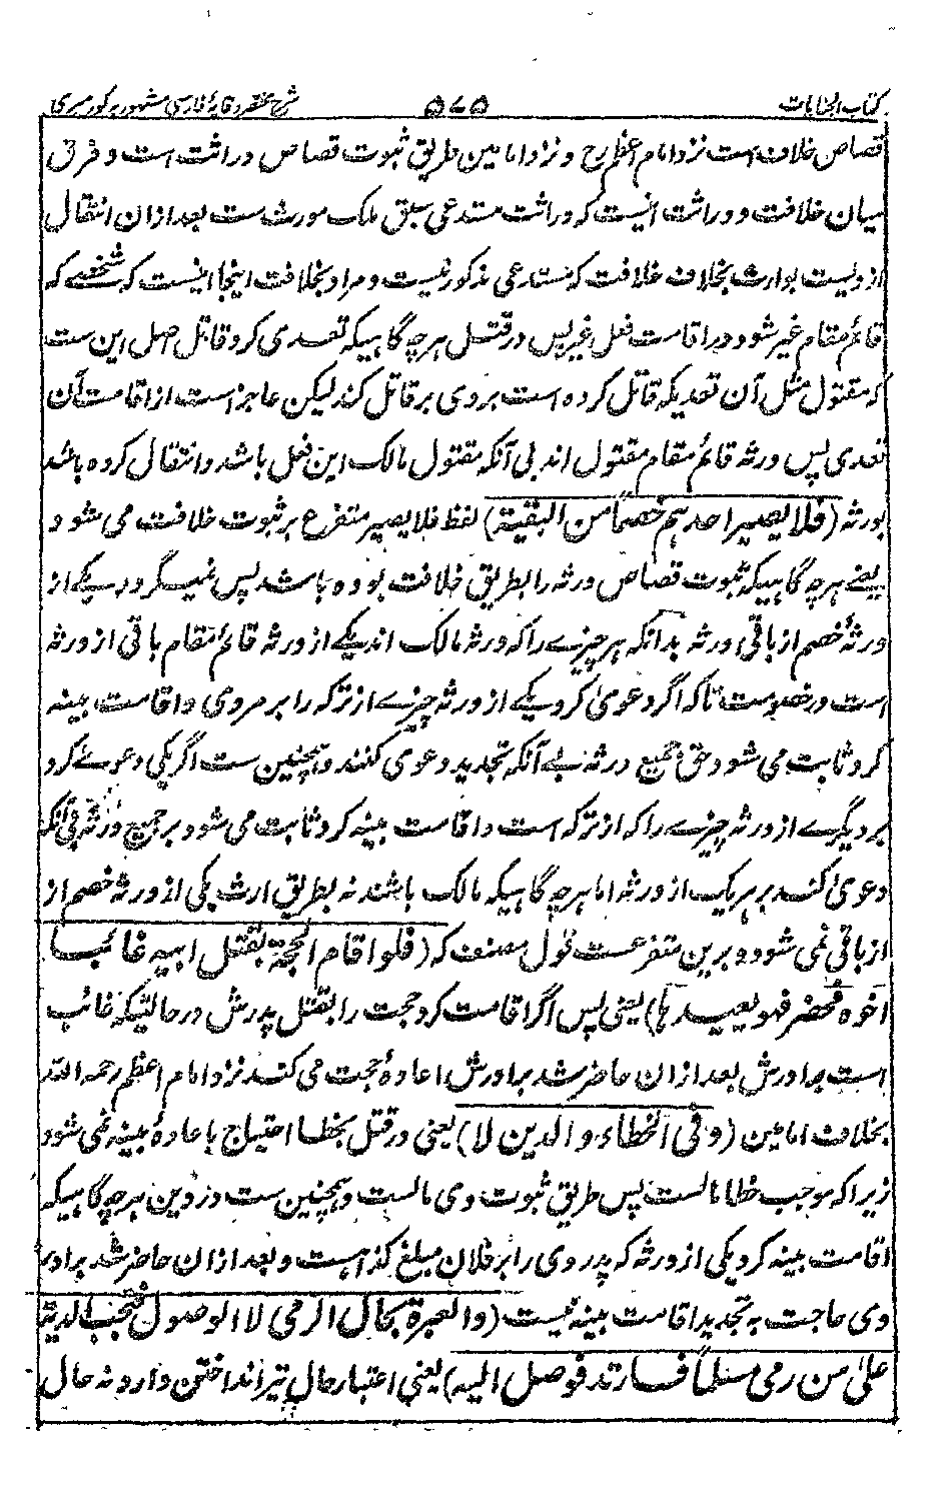 کتاب الجنایات ۵۷۵ شرح مختصر وقایۂ فارسی مشہور بہ کورمیری
قصاص خلافت است نزد امام اعظم رح و نزد امامین طریق ثبوت قصاص وراثت است و فرق
میان خلافت و وراثت اینست کہ وراثت مستدعی سبق ملک مورث ست بعد ازان انتقال
از ویست بوارث بخلاف خلافت کہ مستدعی مذکور نیست و مراد بخلافت اینجا اینست کہ شخصے کہ
قائم مقام غیر شود در اقامت فعل غیر پس در قتل ہرچہ گاہیکہ تعدی کرد قاتل اصل این ست
کہ مقتول مثل آن تعدیکہ قاتل کردہ است بر وی بر قاتل کند لیکن عاجز است از اقامت آن
تعدی پس ورثہ قائم مقام مقتول اند بی آنکہ مقتول مالک این فعل باشد و انتقال کردہ باشد
بورثہ (فلا یصیر احدہم خصماً من البقیة) لفظ فلا یصیر متفرع بر ثبوت خلافت می شود
یعنے ہرچہ گاہیکہ ثبوت قصاص ورثہ را بطریق خلافت بودہ باشد پس نمیگردد یکے از
ورثۂ خصم از باقی ورثہ بدانکہ ہر چیزے را کہ ورثہ مالک اند یکے از ورثہ قائم مقام باقی از ورثہ
است در خصومت تا کہ اگر دعویٰ کرد یکے از ورثہ چیزے از ترکہ را بر مردی و اقامت بینہ
کرد ثابت می شود حق جمیع ورثہ بے آنکہ تجدید دعوی کنند و ہمچنین ست اگر یکی دعوے کرد
بر دیگرے از ورثہ چیزے را کہ از ترکہ است و اقامت بینہ کرد ثابت می شود بر جمیع ورثہ بی آنکہ
دعویٰ کند بر ہر یک از ورثہ اما ہرچہ گاہیکہ مالک باشند نہ بطریق ارث یکی از ورثہ خصم از
از باقی نمی شود و برین متفرعست قول مصنف کہ (فلو اقام الحجة بقتل ابیہ غائبا
اخوہ فحضر فہو یعیدہا) یعنی پس اگر اقامت کرد حجت را بقتل پدرش در حالتیکہ غائب
است برادرش بعد ازان حاضر شد برادرش اعادۂ حجت می کند نزد امام اعظم رحمہ اللہ
بخلاف امامین (و فی الخطاء و الدین لا) یعنی در قتل بخطا احتیاج باعادۂ بینہ نمی شود
زیرا کہ موجب خطا مالست پس طریق ثبوت وی مالست و ہمچنین ست در دین ہرچہ گاہیکہ
اقامت بینہ کرد یکی از ورثہ کہ پدر وی را بر فلان مبلغ کذا ہست و بعد ازان حاضر شد برادر
وی حاجت بہ تجدید اقامت بینہ نیست (والعبرة بحال الرمی لا الوصول فتجب الدیة
علیٰ من رمی مسلماً فارتد فوصل الیہ) یعنی اعتبار حال تیر انداختن دارد نہ حال